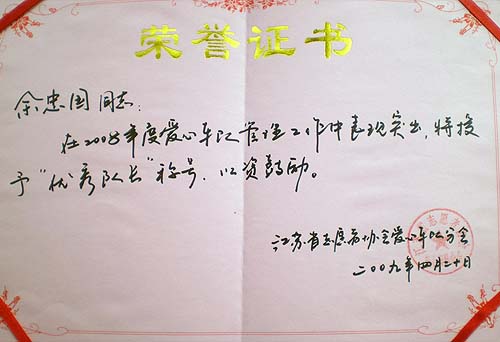 荣誉证书
余忠国同志：
在2008年度爱心车队管理工作中表现突出，特授
予“优秀队长”称号，以资鼓励。
江苏省志愿者协会爱心车队分会
二〇〇九年四月二十日